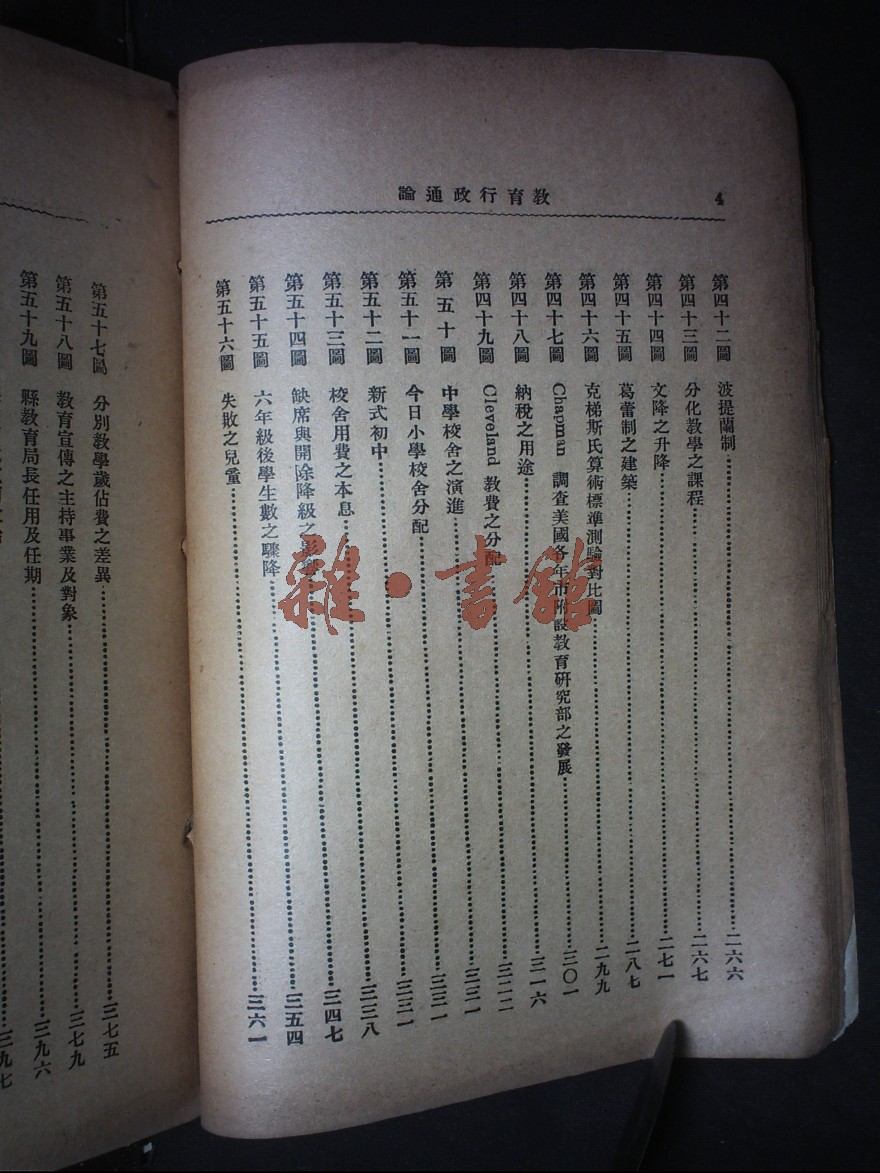 教育行政通論 4
第四十二圖 波提蘭制 二六六
第四十三圖 分化教學之課程 二六七
第四十四圖 文降之升降 二七一
第四十五圖 葛蕾制之建築 二八七
第四十六圖 克梯斯氏算術標準測驗對比圖 二九九
第四十七圖 Chapman 調查美國各年市附設教育研究部之發展 三〇一
第四十八圖 納稅之用途 三一六
第四十九圖 Cleveland 教費之分配 三二二
第五十圖 中學校舍之演進 三三一
第五十一圖 今日小學校舍分配 三三一
第五十二圖 新式初中 三三一
第五十三圖 校舍用費之本息 三三八
第五十四圖 缺席與開除降級之影響 三四七
第五十五圖 六年級後學生數之驟降 三五四
第五十六圖 失敗之兒童 三六一
第五十七圖 分別教學歲佔費之差異 三七五
第五十八圖 教育宣傳之主持事業及對象 三七九
第五十九圖 縣教育局長任用及任期 三九六
三九七
雜·書館